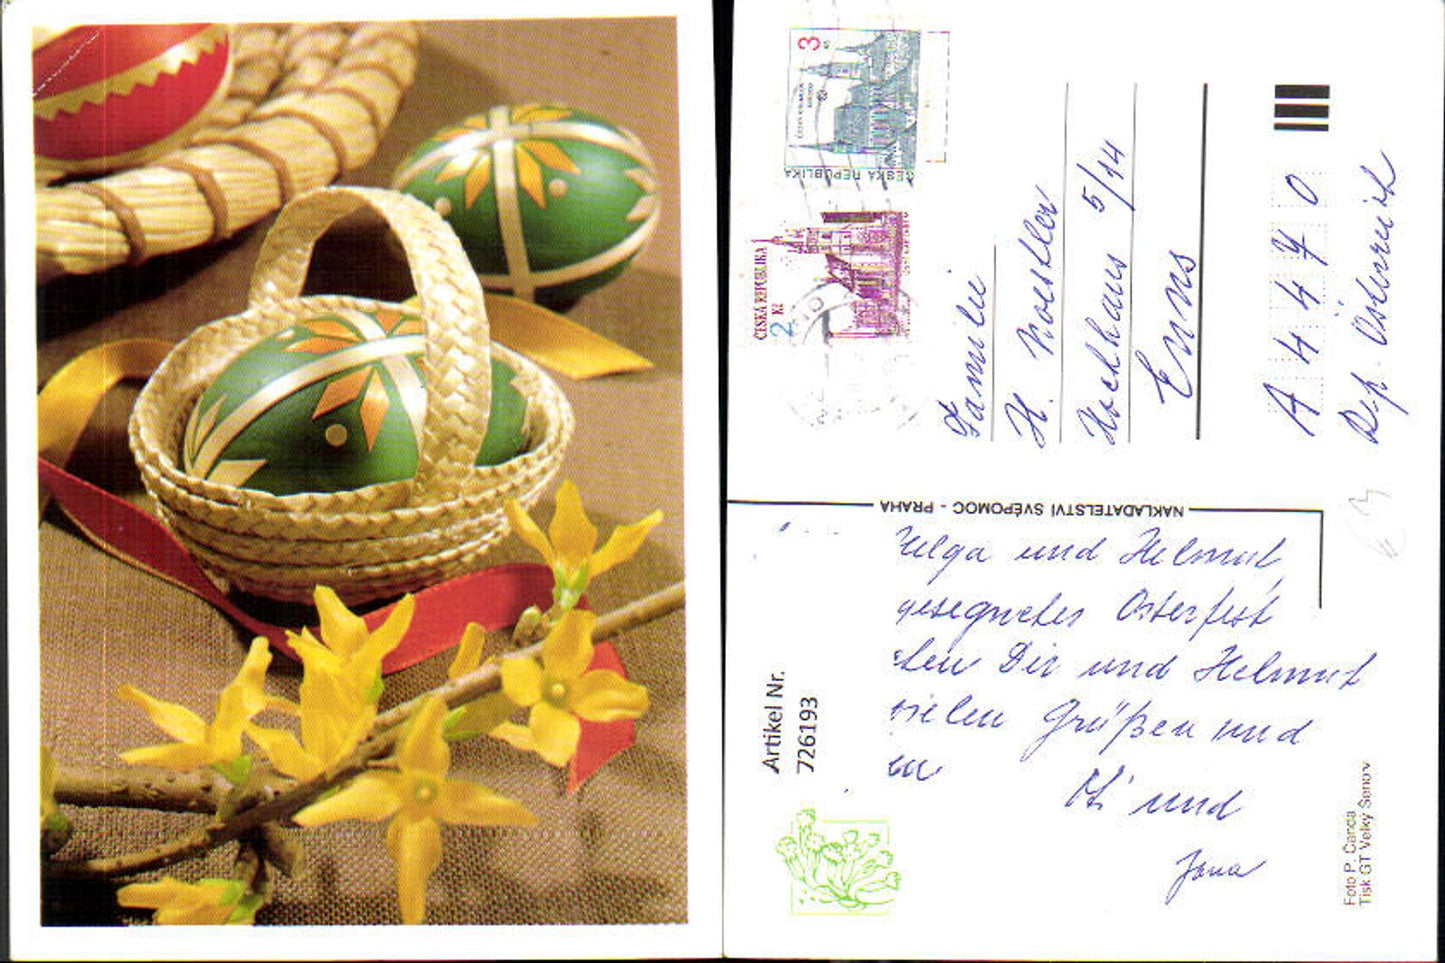 Helga und Helmut
gesegnetes Osterfest
Dir und Helmut
vielen Grüßen und
und
Jana
NAKLADATELSTVÍ SVÉPOMOC - PRAHA
3
ČESKÁ REPUBLIKA
ČESKÁ REPUBLIKA
2 Kč
Familie
H.
Hochhaus 5/14
Enns
A 4470
Rep. Österreich
Artikel Nr.
726193
Foto P. Čanda
Tisk GT Velký Šenov